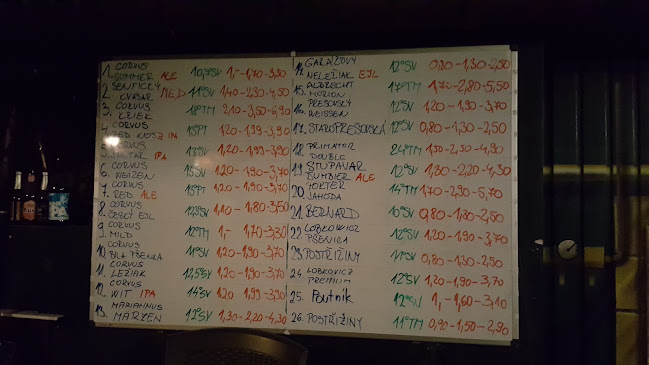 1. CORVUS
SUMMER ALE SV 1,- -1,70-3,30
2. SENTICKÝ
KVASAR MED 11°SV 1,40-2,30-4,50
3. CORVUS
KRIEK 18°TM 2,10-3,50-6,90
4. CORVUS
IPA 15°PT 1,20-1,99-3,90
5. CORVUS
IPA 13°SV 1,20-1,99-3,90
6. CORVUS
WEIZEN 13°SV 1,20-1,90-3,70
7. CORVUS
RED ALE 13°PT 1,20-1,90-3,70
8. CORVUS
ČESKÝ EJL 12°SV 1,10-1,80-3,50
9. CORVUS
MILD 12°TM 1,- -1,70-3,30
10. CORVUS
BÍLÁ PŠENKA 11°SV 1,20-1,90-3,70
11. CORVUS
LEŽIAK 12,5°SV 1,20-1,90-3,70
12. CORVUS
WIT IPA 14°SV 1,20-1,99-3,90
13. MARIAHNUS
MARZEN 12°SV 1,30-2,20-4,30
14. GARÁŽOVÝ
NELEŽIAK EJL 12°SV 0,80-1,30-2,50
15. ALBRECHT
MORION 14°TM 1,70-2,80-5,50
16. PREŠOVSKÝ
WEISSEN 12°SV 1,20-1,90-3,70
17. STAROPREŠOVSKÁ 12°SV 0,80-1,30-2,50
18. PRIMÁTOR
DOUBLE 24°TM 1,50-2,50-4,90
19. STUPAVAR
BUMBIER ALE 12°SV 1,30-2,20-4,30
20. PORTER
JAHODA 14°TM 1,70-2,90-5,70
21. BERNARD 10°SV 0,80-1,30-2,50
22. LOBKOWICZ
PŠENICA 12°SV 1,20-1,90-3,70
23. POSTŘIŽINY 11°SV 0,80-1,30-2,50
24. LOBKOWICZ
PREMIUM 12°SV 1,20-1,90-3,70
25. Poutník 12°SV 1,- -1,60-3,10
26. POSTŘIŽINY 11°TM 0,90-1,50-2,90